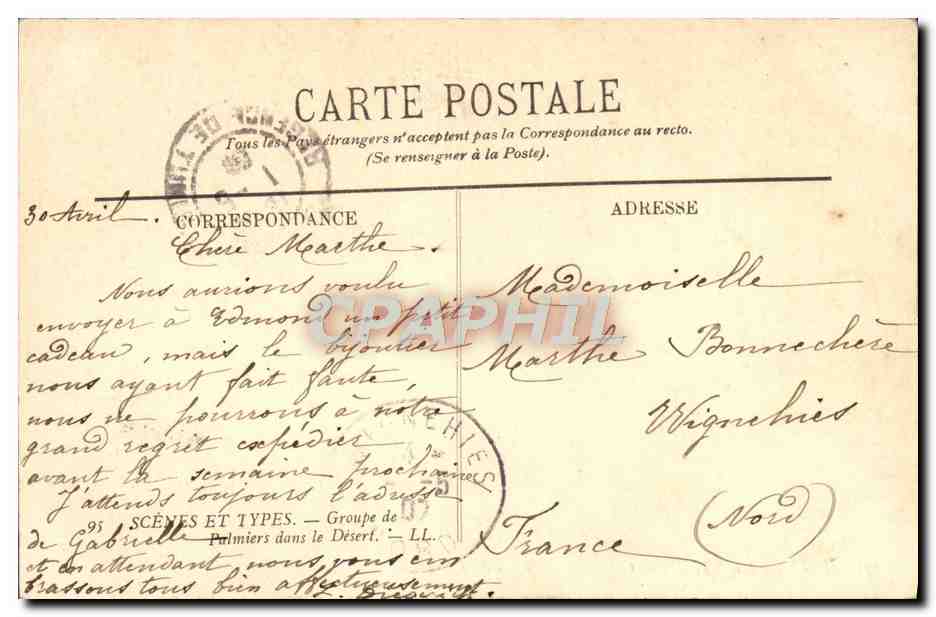 CARTE POSTALE
Tous les Pays étrangers n'acceptent pas la Correspondance au recto.
(Se renseigner à la Poste).
CORRESPONDANCE
30 Avril.
Chère Marthe.
Nous aurions voulu
envoyer à Edmond un petit
cadeau, mais le bijoutier
nous ayant fait faute,
nous ne pourrons à notre
grand regret expédier
avant la semaine prochaine
J'attends toujours l'adresse
de Gabrielle
et en attendant nous vous em
brassons tous bien affectueusement
95 SCÈNES ET TYPES. — Groupe de
Palmiers dans le Désert. — LL.
ADRESSE
Mademoiselle
Marthe Bonnechère
Wignehies
(Nord)
France
CPAPHIL